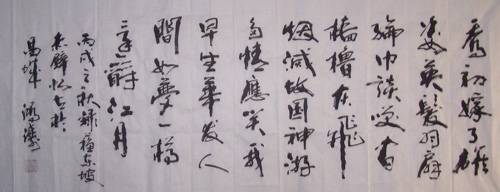 喬初嫁了雄
姿英發羽扇
綸巾談笑間
檣櫓灰飛
烟滅故國神游
多情應笑我
早生華发人
間如夢一樽
還酹江月
丙戌之秋錄蘇東坡
赤壁懷古於